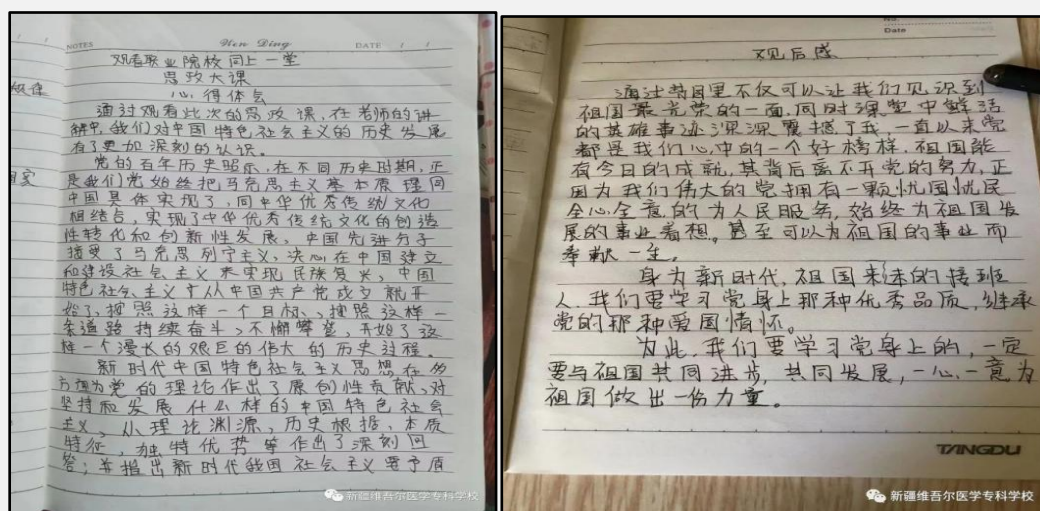 NOTES
Hen Ding
DATE
观看职业院校同上一堂
思政大课
心得体会
通过观看此次的思政课，在老师的讲
解中，我们对中国特色社会主义的历史发展
有了更加深刻的认识。
党的百年历史昭示，在不同历史时期，正
是我们党始终把马克思主义基本原理同
中国具体实现了，同中华优秀传统文化
相结合，实现了中华优秀传统文化的创造
性转化和创新性发展。中国先进分子
接受了马克思列宁主义，决心在中国建立
和建设社会主义来实现民族复兴，中国
特色社会主义才从中国共产党成立就开
始了，按照这样一个目标、按照这样一
条道路持续奋斗、不懈攀登，开始了这
样一个漫长的艰巨的伟大的历史过程。
新时代中国特色社会主义思想在多
方面为党的理论作出了原创性贡献、对
坚持和发展什么样的中国特色社会
主义，从理论渊源，历史根据，本质
特征，独特优势等作出了深刻回
答；并指出新时代我国社会主义要矛盾
新疆维吾尔医学专科学校
No.
Date
观后感
通过梦园里不仅可以让我们见识到
祖国最光荣的一面，同时课堂中鲜活
的英雄事迹深深震撼了我，一直以来党
都是我们心中的一个好榜样，祖国能
有今日的成就，其背后离不开党的努力，正
因为我们伟大的党拥有一颗忧国忧民
全心全意的为人民服务，始终为祖国发
展的事业着想。甚至可以为祖国的事业而
奉献一生。
身为新时代，祖国未来的接班
人，我们要学习党身上那种优秀品质，继承
党的那种爱国情怀。
为此，我们要学习党身上的，一定
要与祖国共同进步，共同发展，一心一意为
祖国做出一份力量。
TANGDU
新疆维吾尔医学专科学校